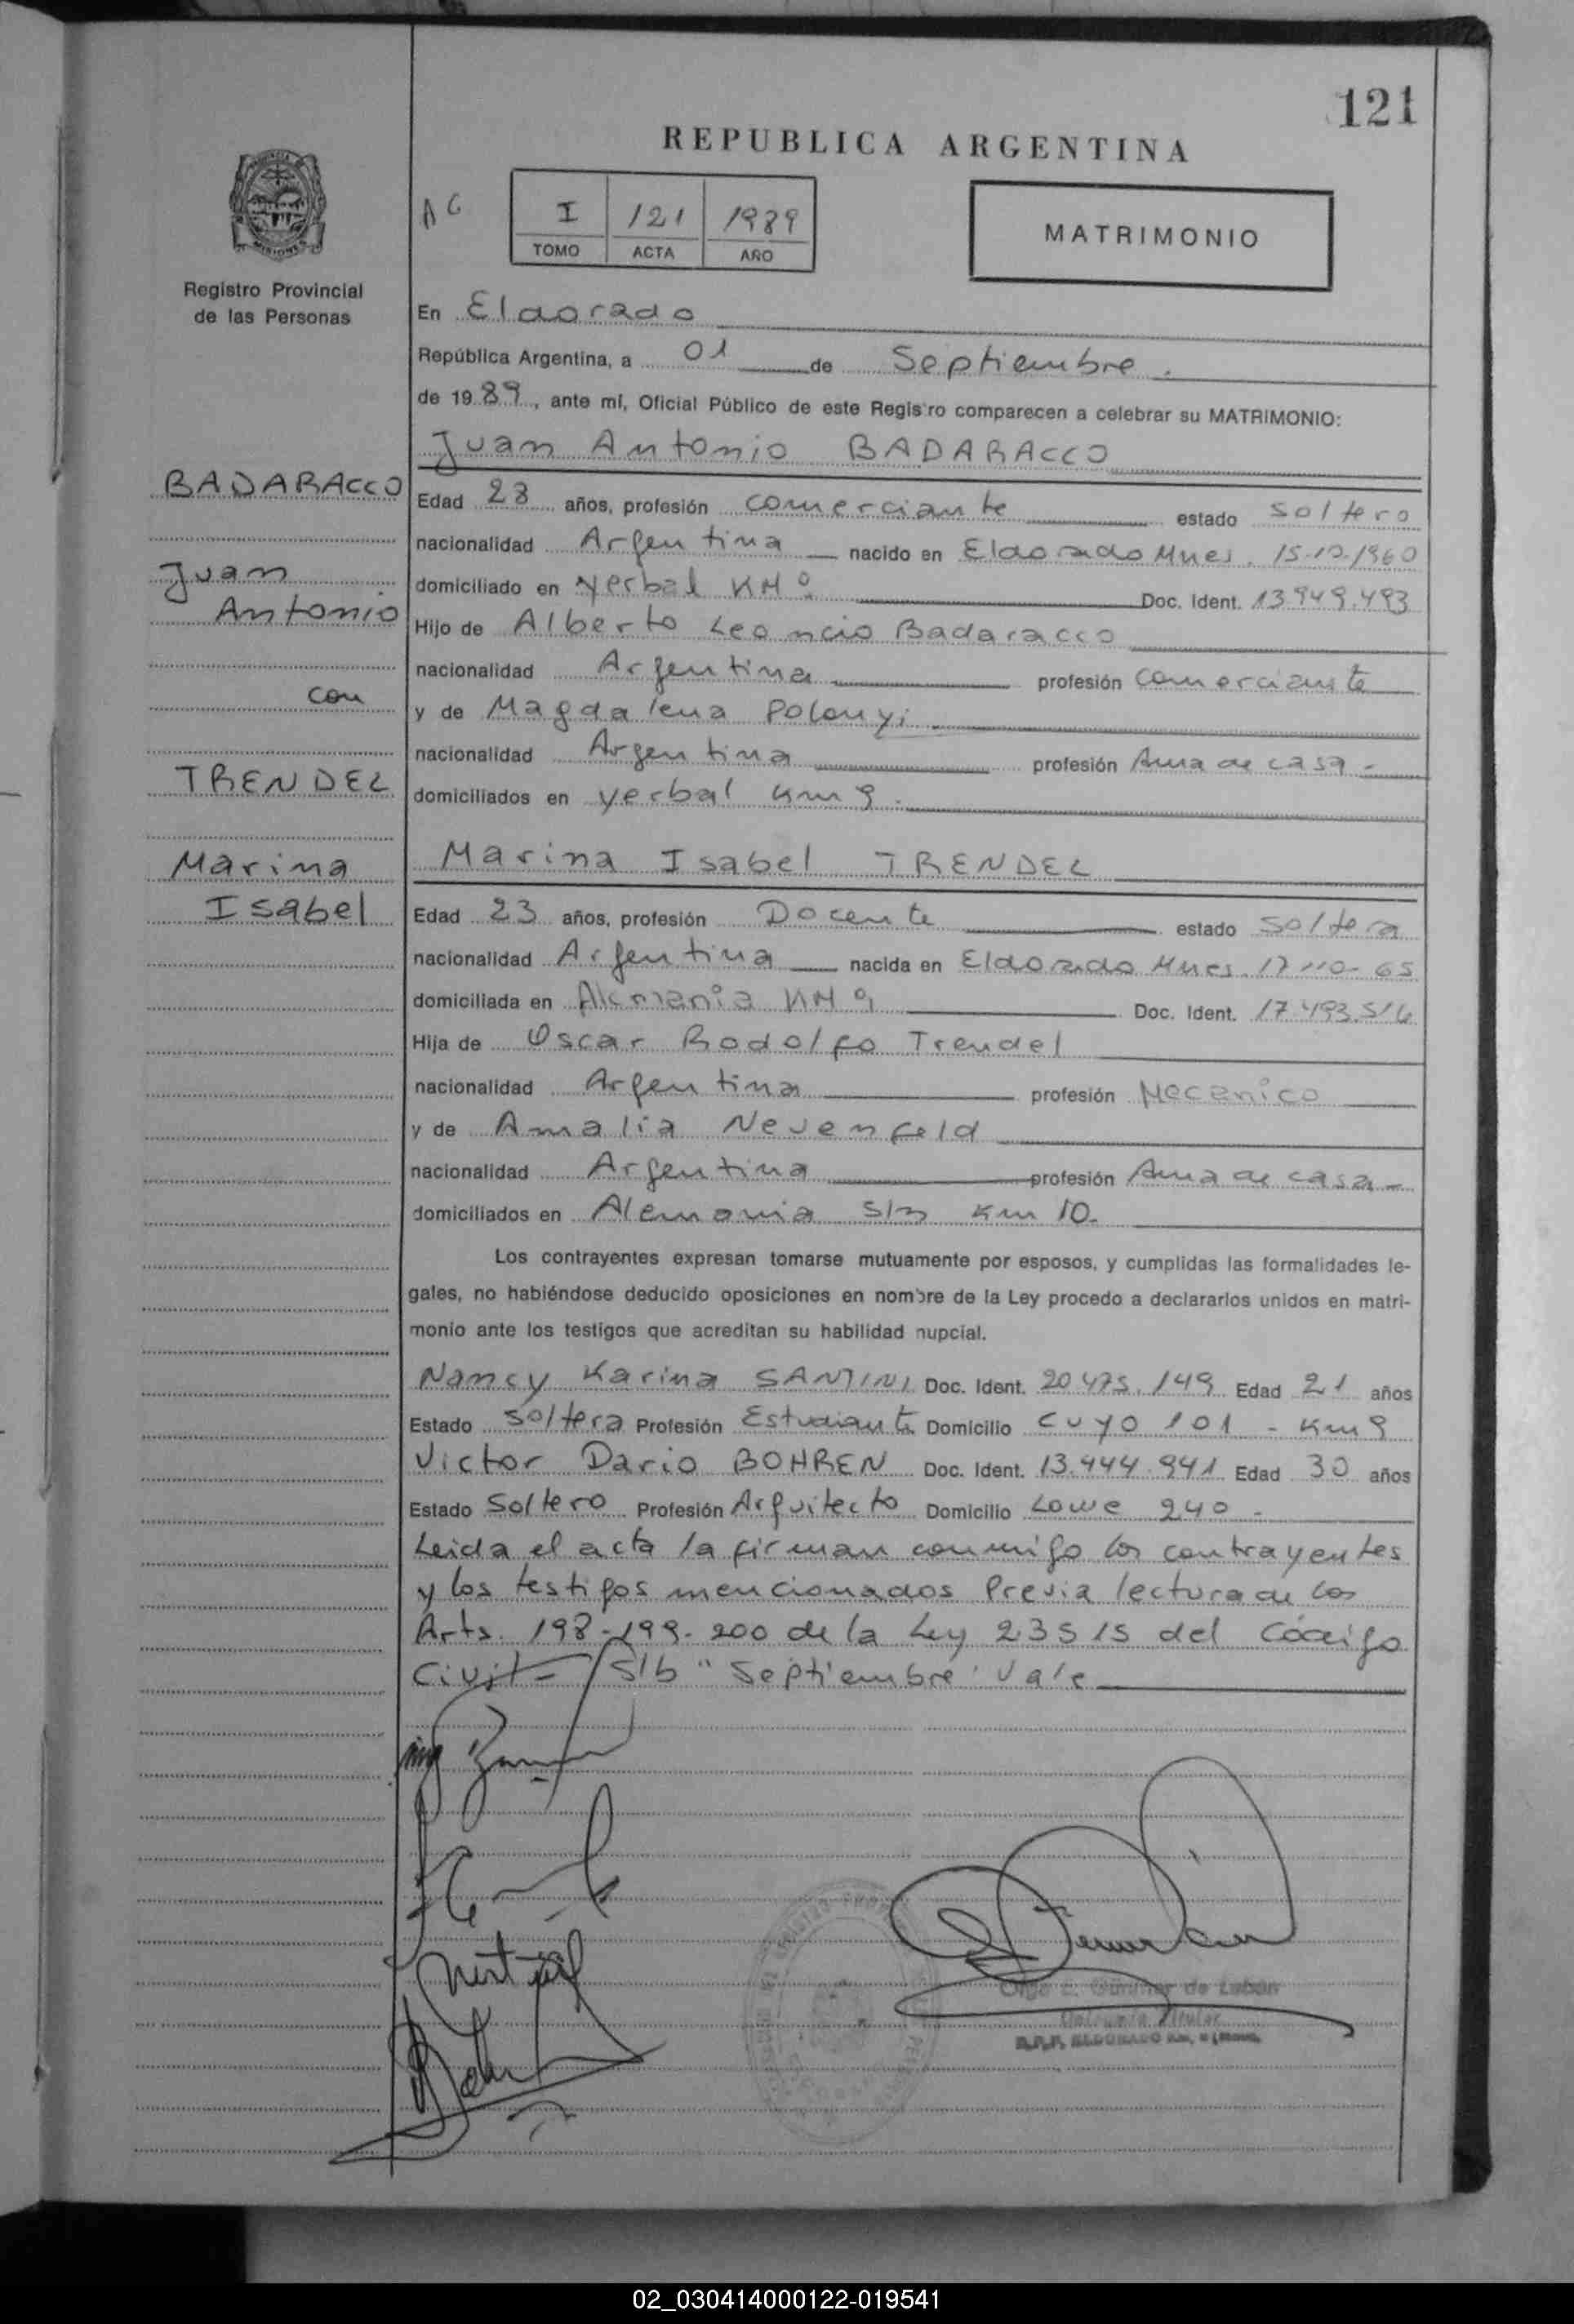 121
REPUBLICA ARGENTINA
AG
I 121 1989
TOMO ACTA AÑO
MATRIMONIO
PROVINCIA DE MISIONES
Registro Provincial
de las Personas
En Eldorado
República Argentina, a 01 de Septiembre.
de 1989, ante mí, Oficial Público de este Registro comparecen a celebrar su MATRIMONIO:
Juan Antonio BADARACCO
BADARACCO
Juan
Antonio
con
TRENDEL
Marina
Isabel
Edad 28 años, profesión comerciante estado soltero
nacionalidad Argentina nacido en Eldorado Mnes. 15-12-1960
domiciliado en Yerbal KM 9. Doc. Ident. 13.949.493
Hijo de Alberto Leoncio Badaracco
nacionalidad Argentina profesión comerciante
y de Magdalena Polonyi
nacionalidad Argentina profesión Ama de casa -
domiciliados en yerbal km 9.
Marina Isabel TRENDEL
Edad 23 años, profesión Docente estado soltera
nacionalidad Argentina nacida en Eldorado Mnes. 17-10-65
domiciliada en Alemania KM 9 Doc. Ident. 17.493.516
Hija de Oscar Rodolfo Trendel
nacionalidad Argentina profesión Mecanico
y de Amalia Neuenfeld
nacionalidad Argentina profesión Ama de casa -
domiciliados en Alemania s/n km 10.
Los contrayentes expresan tomarse mutuamente por esposos, y cumplidas las formalidades le-
gales, no habiéndose deducido oposiciones en nombre de la Ley procedo a declararlos unidos en matri-
monio ante los testigos que acreditan su habilidad nupcial.
Nancy Karina SANTINI Doc. Ident. 20.475.149 Edad 21 años
Estado soltera Profesión Estudiante Domicilio Cuyo 101 - Km 9
Victor Dario BOHREN Doc. Ident. 13.444.941 Edad 30 años
Estado Soltero Profesión Arquitecto Domicilio Lowe 240 -
Leida el acta la firman conmigo los contrayentes
y los testigos mencionados Previa lectura de los
Arts. 198-199-200 de la Ley 23515 del Código
Civil - S/b "Septiembre" Vale
Olga E. Günther de Labán
R.P.P. ELDORADO Km. 9 (Mnes.)
02_030414000122-019541